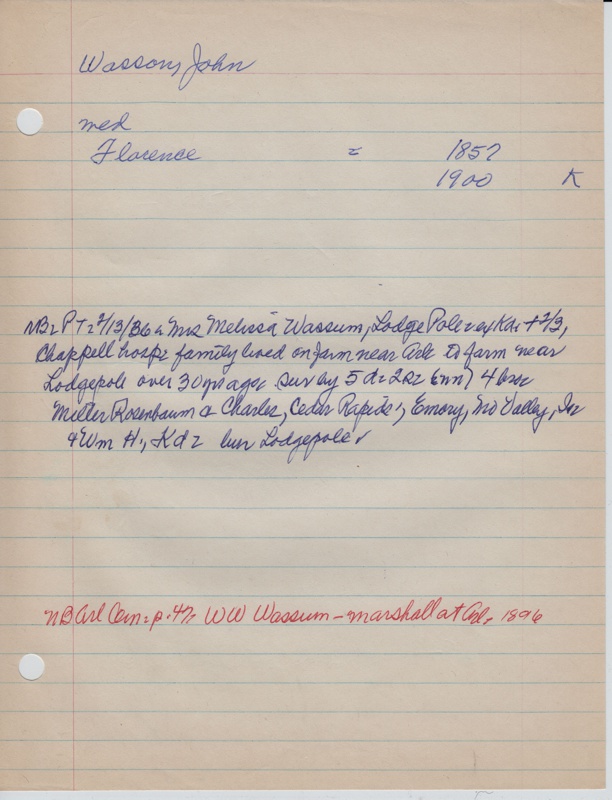 Wasson, John
med
Florence = 1857
1900 K
NB= PT= 2/13/36 = Mrs Melissa Wassum, Lodge Pole = + 2/3,
Chappell hosp= family lived on farm near Arl= to farm near
Lodgepole over 30 yrs ago= surv by 5 d= 2 s= 4 bro=
Miller Rosenbaum & Charles, Cedar Rapids, Emory, Mo Valley, Ia=
& Wm H., K d = bur Lodgepole
NB Arl Cem= p. 47= WW Wassum - marshall at Arl= 1896